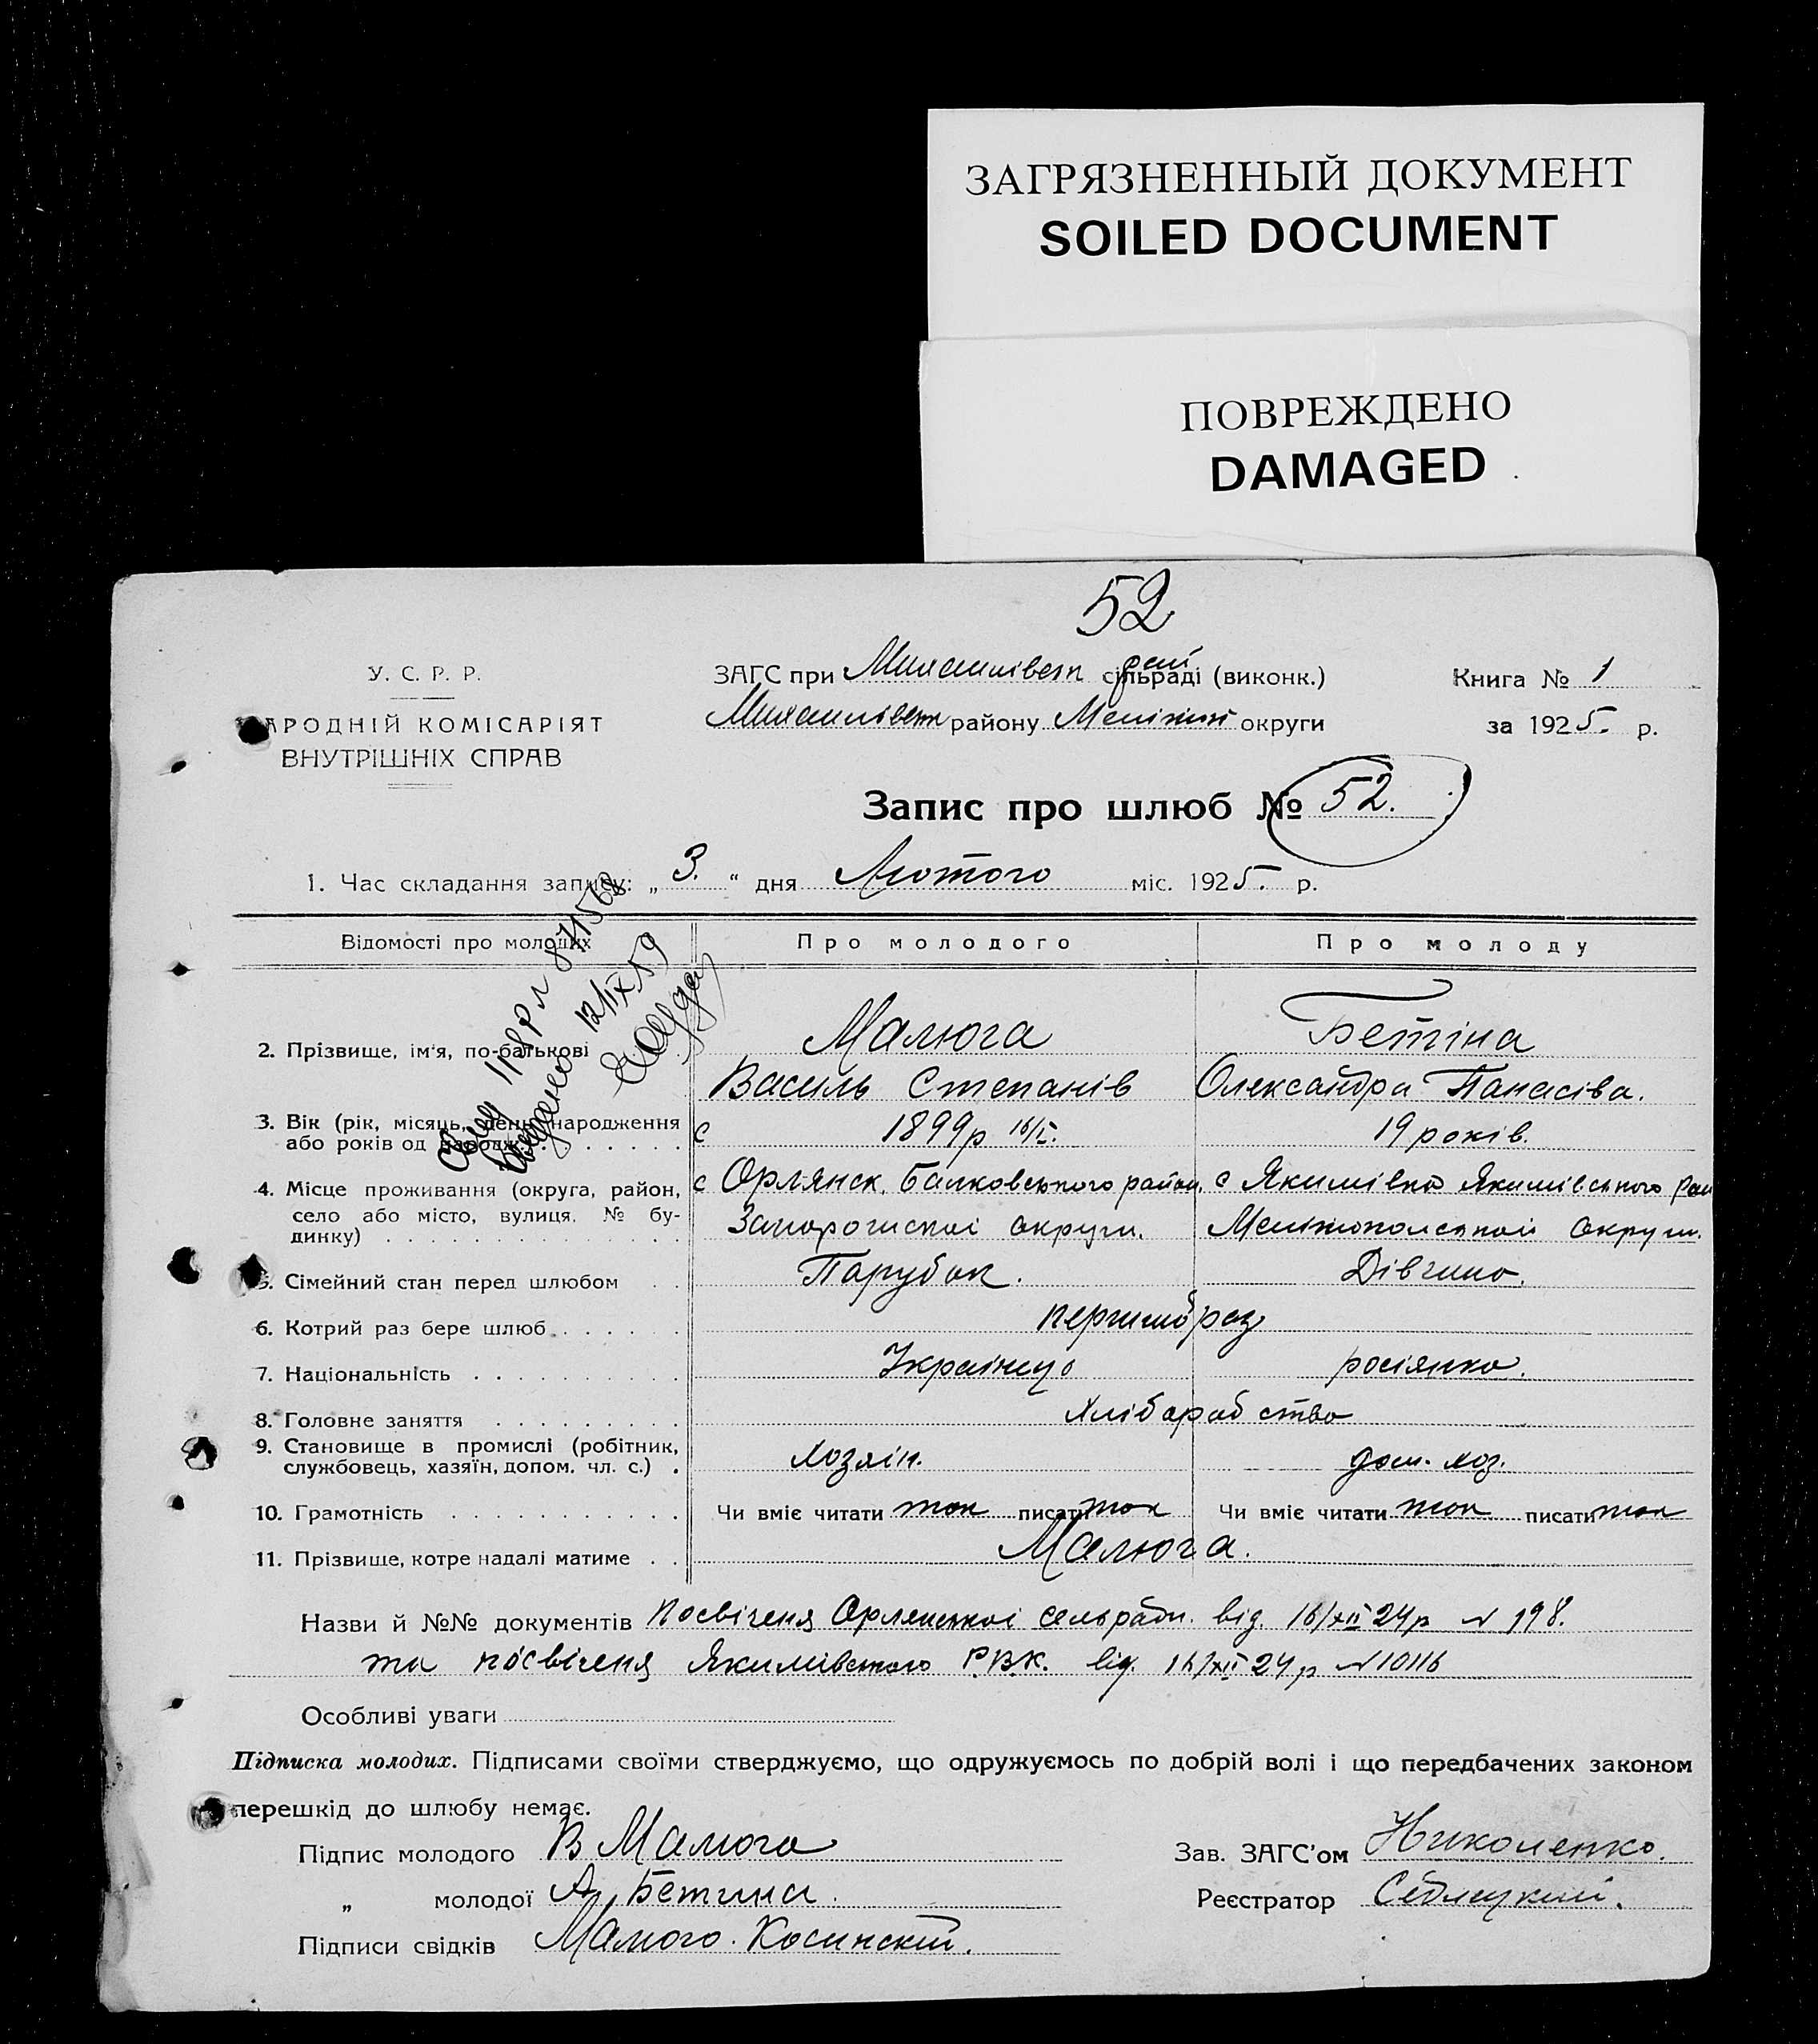 ЗАГРЯЗНЕННЫЙ ДОКУМЕНТ
SOILED DOCUMENT
ПОВРЕЖДЕНО
DAMAGED
52
У. С. Р. Р.
АРОДНІЙ КОМІСАРІЯТ
ВНУТРІШНІХ СПРАВ
ЗАГС при Михайлівськ рай сільраді (виконк.)
Михайлівськ району Меліт округи
Книга № 1
за 1925. р.
Запис про шлюб № 52.
1. Час складання запису: „ 3. “ дня Лютого міс. 1925. р.
Відомості про молодих Про молодого Про молоду
2. Прізвище, ім'я, по-батькові Малюга Бетіна
Василь Степанів Олександра Панасіва.
3. Вік (рік, місяць, день народження
або років од народж.) 1899р 19 років.
4. Місце проживання (округа, район,
село або місто, вулиця, № бу-
динку)
с Орлянск, Балковського район, с Якимівка Якимівського рай
Запорожської округи. Мелітопольської округи.
5. Сімейний стан перед шлюбом Парубок. Дівчина.
6. Котрий раз бере шлюб перший раз
7. Національність Українець росіянка.
8. Головне заняття Хлібаробство
9. Становище в промислі (робітник,
службовець, хазяїн, допом. чл. с.) хозяін. дом. хоз.
10. Грамотність Чи вміє читати так писати так Чи вміє читати так писати так
11. Прізвище, котре надалі матиме Малюга.
Назви й №№ документів Посвіченя Орлянської сельради. від. 16/XII 24р N 198.
та посвіченя Якимівського Р.В.К. від. 16/XII 24р N 10116
Особливі уваги
Підписка молодих. Підписами своїми стверджуємо, що одружуємось по добрій волі і що передбачених законом
перешкід до шлюбу немає.
Підпис молодого В Малюга
„ молодої А Бетина.
Підписи свідків Малюга. Косинский.
Зав. ЗАГС'ом Николенко.
Реєстратор
12/IX 59